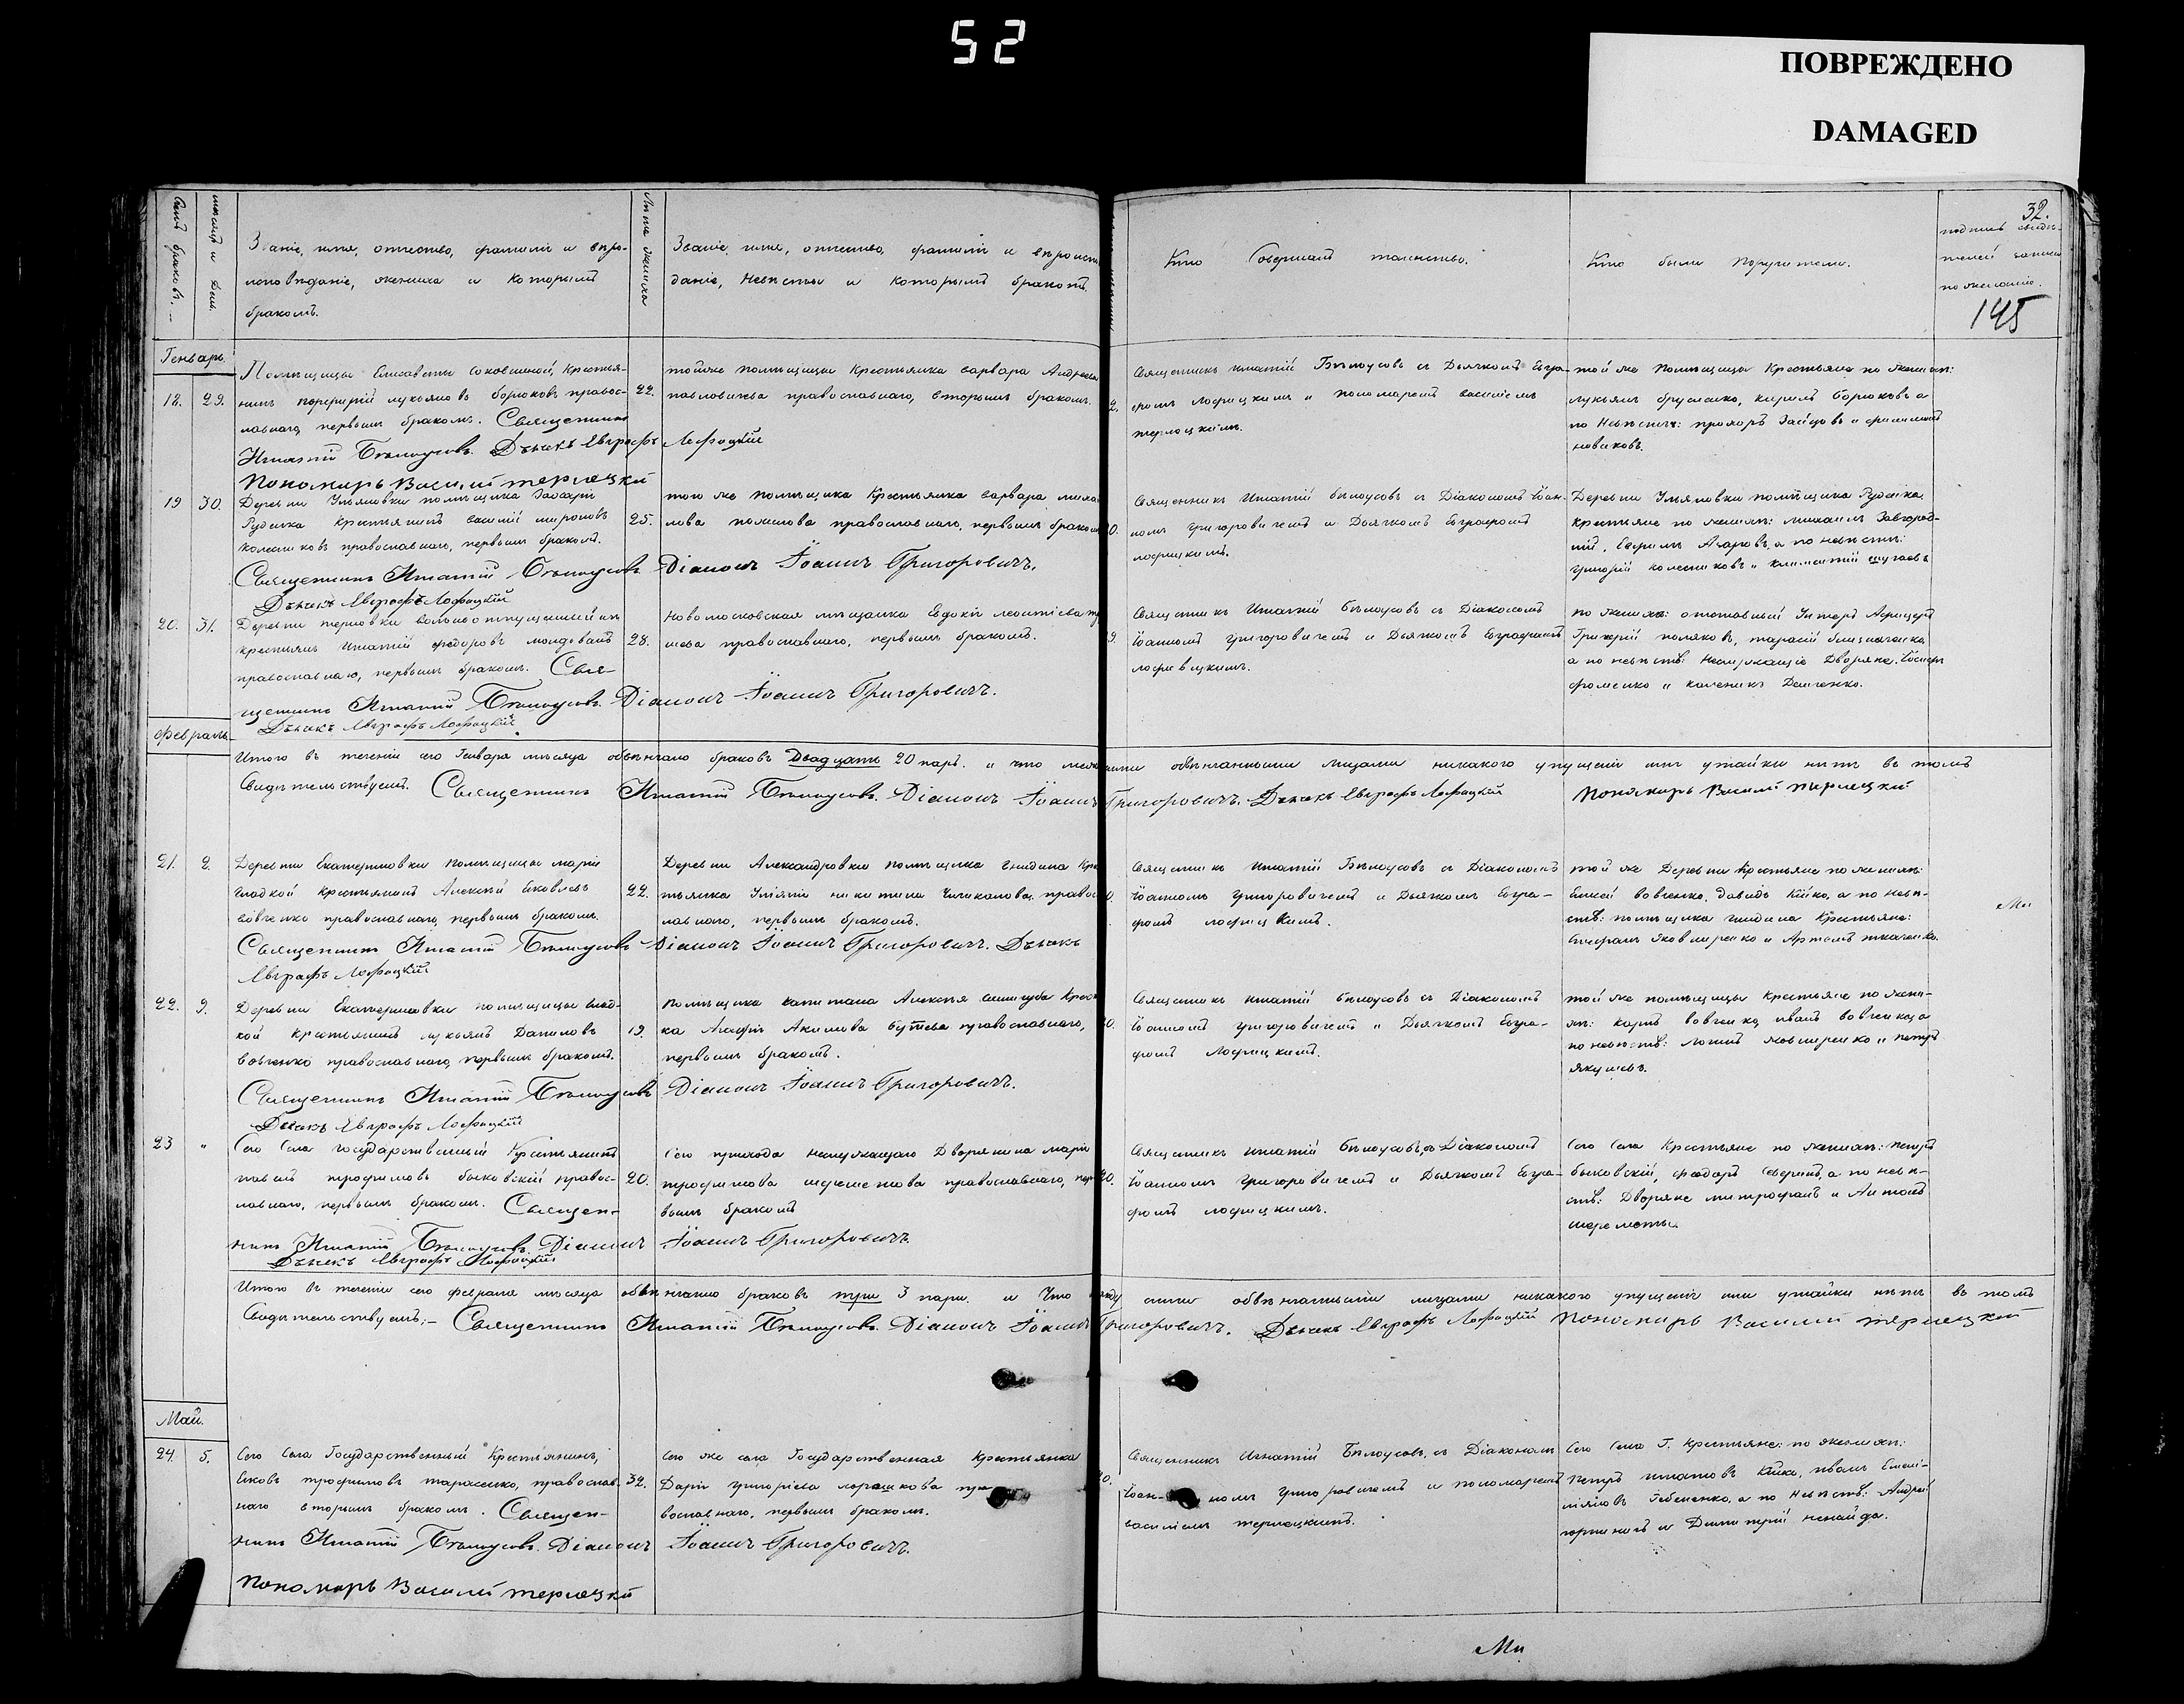 52
ПОВРЕЖДЕНО
DAMAGED
32.
145
Счетъ браковъ.
Мѣсяцъ и день.
Званіе, имя, отчество, фамилія и вѣро-
исповѣданіе, жениха и которымъ
бракомъ.
Лѣта жениха
Званіе, имя, отчество, фамилія и вѣроиспо
даніе, Невѣсты и которымъ бракомъ.
Кто Совершалъ таинство.
Кто были Поручители.
подпись свидѣ-
телей записи
по желанію.
Генварь.
18. 29.
Помѣщицы Елисаветы крестья-
нинъ порфирій лукьяновъ борюковъ правос-
лавнаго, первымъ бракомъ. Священникъ
Игнатій Бѣлоусовъ. Дьячекъ Евграфъ Лофицкій
Пономарь Василій терлецкій
22.
тойже помѣщицы Крестьянка варвара Андреева
православнаго, вторымъ бракомъ.
Священникъ игнатій Бѣлоусовъ съ Дьячкомъ Евгра-
фомъ Лофицкимъ и пономаремъ василіемъ
терлецкимъ.
той же помѣщицы Крестьяне по жених:
лукьянъ бруленко, кирилъ борюковъ а
по Невѣстѣ: прохоръ Зайцовъ и филипъ
новиковъ.
19 30.
Деревни Ульяновки помѣщика
Руденка крестьянинъ василій мироновъ
колесниковъ православнаго, первымъ бракомъ.
Священникъ Игнатій Бѣлоусовъ Діаконъ Іоаннъ Григоровичъ.
Дьячекъ Евграфъ Лофицкій
25.
того же помѣщика Крестьянка варвара
православнаго, первымъ бракомъ
Священникъ Игнатій бѣлоусовъ съ Діакономъ Іоан-
номъ григоровичемъ и Дьячкомъ Евграфомъ
лофицкимъ.
Деревни Ульяновки помѣщика Руденка
крестьяне по жених: михаилъ Завгород-
ній, Ефимъ Агаровъ, а по невѣстѣ:
григорій колесниковъ и климентій
20. 31.
Деревни терновки вольноотпущенный изъ
крестьянъ игнатій федоровъ молдованъ
православнаго, первымъ бракомъ. Свя-
щенникъ Игнатій Бѣлоусовъ. Діаконъ Іоаннъ Григоровичъ.
Дьячекъ Евграфъ Лофицкій.
28.
Новомосковская мѣщанка Евдокія леонтіева
православнаго, первымъ бракомъ.
Священникъ Игнатій Бѣлоусовъ съ Діакономъ
Іоанномъ григоровичемъ и Дьячкомъ Евграфомъ
лофицкимъ.
по жених: отставный Унтеръ Афицеръ
Григорій поляковъ, тарасій близначенко,
а по невѣстѣ: Неслужащіе Дворяне: Іосифъ
фоменко и каленикъ Демченко.
Февраль.
Итого въ теченіи сего Генваря мѣсяца обвѣнчано браковъ Двадцать 20 паръ. и что между сими обвѣнчанными лицами никакого упущенія или утайки нѣтъ въ томъ
Свидѣтельствуемъ. Священникъ Игнатій Бѣлоусовъ. Діаконъ Іоаннъ Григоровичъ. Дьячекъ Евграфъ Лофицкій Пономарь Василій терлецкій
21. 2.
Деревни Екатериновки помѣщицы маріи
гладкой крестьянинъ Алексѣй Яковлевъ
вовченко православнаго, первымъ бракомъ.
Священникъ Игнатій Бѣлоусовъ Діаконъ Іоаннъ Григоровичъ. Дьячекъ
Евграфъ Лофицкій
22.
Деревни Александровки помѣщика гнидина Крес
тьянка никитина правос
лавнаго, первымъ бракомъ.
Священникъ игнатій Бѣлоусовъ съ Діакономъ
Іоанномъ григоровичемъ и Дьячкомъ Евгра-
фомъ лофицкимъ.
той же Деревни Крестьяне по жених:
вовченко, Давидъ Кійко, а по невѣ-
стѣ: помѣщика гнидина Крестьяне:
Яковлиренко и Артемъ ткаченко.
22. 9.
Деревни Екатериновки помѣщицы глад-
кой крестьянинъ лукьянъ Даниловъ
вовченко православнаго, первымъ бракомъ.
Священникъ Игнатій Бѣлоусовъ Діаконъ Іоаннъ Григоровичъ.
Дьячекъ Евграфъ Лофицкій
19.
помѣщика капитана Алексѣя Крестьян
ка Агафія Акимова православнаго,
первымъ бракомъ.
Священникъ игнатій бѣлоусовъ съ Діакономъ
Іоанномъ григоровичемъ и Дьячкомъ Евгра-
фомъ Лофицкимъ.
той же помѣщицы Крестьяне по жени-
хѣ: карпъ вовченко, иванъ вовченко, а
по невѣстѣ: и петръ
якушевъ.
23 "
Сего Села государственный Крестьянинъ
павелъ трофимовъ быковскій правос-
лавнаго, первымъ бракомъ. Священ-
никъ Игнатій Бѣлоусовъ. Діаконъ Іоаннъ Григоровичъ.
Дьячекъ Евграфъ Лофицкій
20.
Сего прихода неслужащаго Дворянина марія
трофимова православнаго, пер
вымъ бракомъ
Священникъ игнатій бѣлоусовъ, съ Діакономъ
Іоанномъ григоровичемъ и Дьячкомъ Евгра-
фомъ лофицкимъ.
Сего Села Крестьяне по жених: петръ
быковскій, федоръ Севринъ, а по невѣ-
стѣ: Дворяне митрофанъ и Антонъ
шереметы.
Итого въ теченіи сего февраля мѣсяца обвѣнчано браковъ три 3 пары. и Что между сими обвѣнчанными лицами никакого упущенія или утайки нѣтъ въ томъ
Свидѣтельствуемъ:- Священникъ Игнатій Бѣлоусовъ. Діаконъ Іоаннъ Григоровичъ. Дьячекъ Евграфъ Лофицкій Пономарь Василій терлецкій
Май.
24. 5.
Сего Села Государственный Крестьянинъ,
Яковъ трофимовъ тарасенко, православ-
наго вторымъ бракомъ. Священ-
никъ Игнатій Бѣлоусовъ. Діаконъ Іоаннъ Григоровичъ.
Пономарь Василій терлецкій
32.
Сего же села Государственная Крестьянка
Дарія григоріева пра
вославнаго, первымъ бракомъ.
Священникъ Игнатій Бѣлоусовъ, съ Діакономъ
Іоан- номъ григоровичемъ и пономаремъ
василіемъ терлецкимъ.
Сего Села Г. Крестьяне: по жених:
Петръ игнатовъ Кійко, иванъ Емелі-
яновъ а по Невѣстѣ: Андрей
и Димитрій ненайда.
Ми